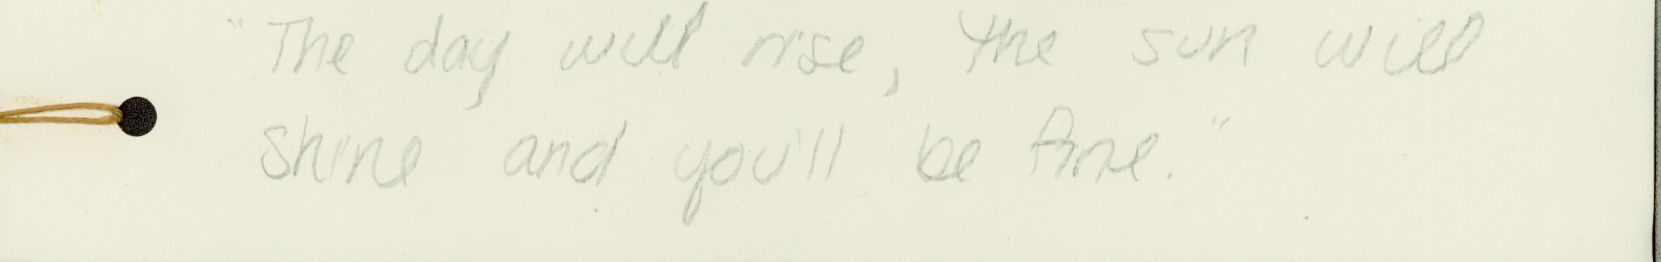 "The day will rise, the sun will
shine and you'll be fine."